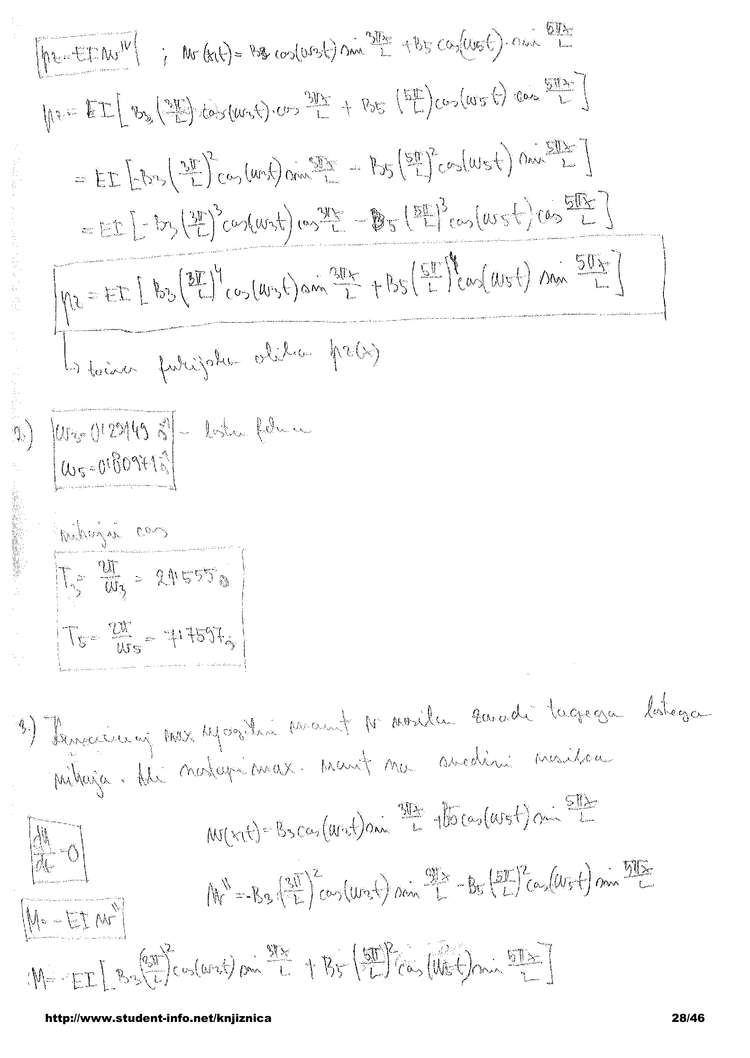 pz = EI w^IV ; w(x,t) = B3 cos(ω3t) sin 3πx/L + B5 cos(ω5t) · sin 5πx/L
pz = EI [ B3 (3π/L) · cos(ω3t) · cos 3πx/L + B5 (5π/L) cos(ω5t) · cos 5πx/L ]
= EI [ -B3 (3π/L)^2 cos(ω3t) sin 3πx/L - B5 (5π/L)^2 cos(ω5t) sin 5πx/L ]
= EI [ -B3 (3π/L)^3 cos(ω3t) cos 3πx/L - B5 (5π/L)^3 cos(ω5t) cos 5πx/L ]
pz = EI [ B3 (3π/L)^4 cos(ω3t) sin 3πx/L + B5 (5π/L)^4 cos(ω5t) sin 5πx/L ]
↳ točna funkcijska oblika pz(x)
2.) ω3 = 0'29149 s^-1 - lastna
ω5 = 0'80971 s^-1
nihajni čas
T3 = 2π/ω3 = 21'555 s
T5 = 2π/ω5 = 7'7597 s
3.) max upogibni moment v nosilcu zaradi tega lastnega
nihanja. Ali nastopi max. moment na sredini nosilca
w(x,t) = B3 cos(ω3t) sin 3πx/L + B5 cos(ω5t) sin 5πx/L
dM/dt = 0
w'' = -B3 (3π/L)^2 cos(ω3t) sin 3πx/L - B5 (5π/L)^2 cos(ω5t) sin 5πx/L
M = -EI w''
M = EI [ B3 (3π/L)^2 cos(ω3t) sin 3πx/L + B5 (5π/L)^2 cos(ω5t) sin 5πx/L ]
http://www.student-info.net/knjiznica
28/46